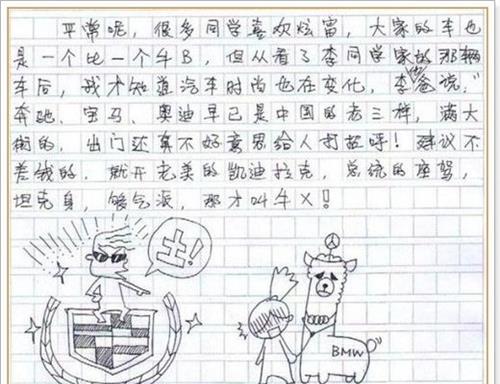 平常呢，很多同学喜欢炫富，大家的车也
是一个比一个牛B，但从看了李同学家的那辆
车后，我才知道汽车时尚也在变化，李爸说，“
奔驰、宝马、奥迪早已是中国的老三样，满大
街的，出门还真不好意思给人打招呼！建议不
差钱的，就开完美的凯迪拉克，总统的座驾，
坦克身，够气派，那才叫牛X！
土！
BMW